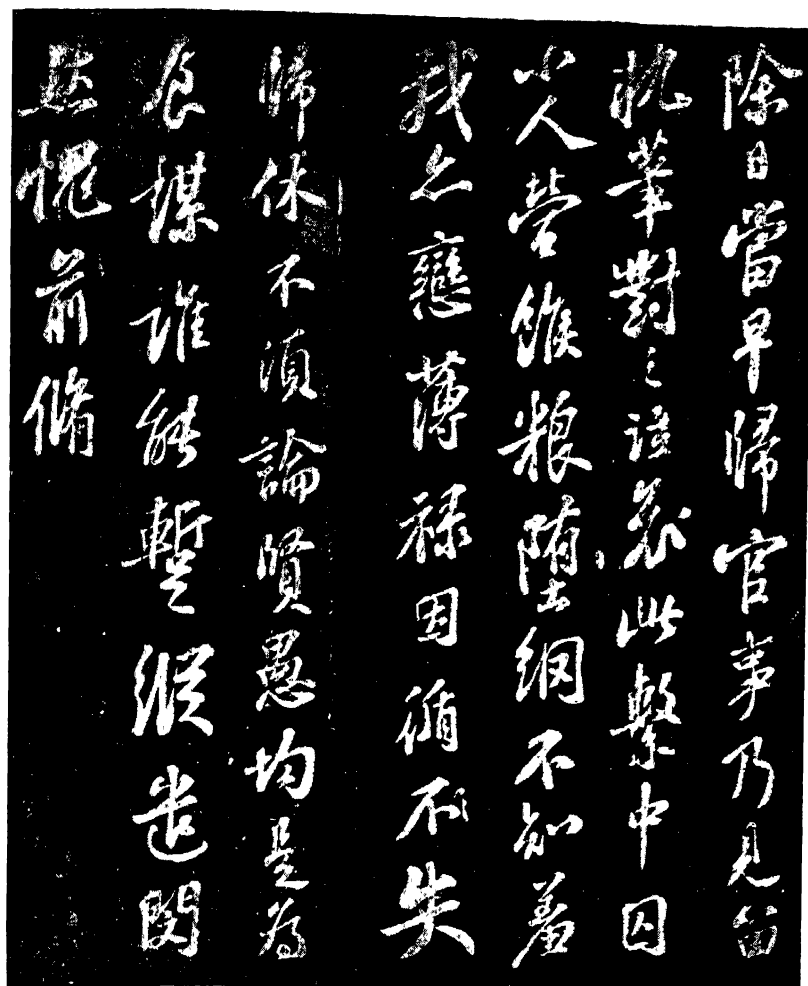 除日當早歸官事乃見留
執筆對之泣哀此繫中囚
小人營餱粮墮網不知羞
我亦戀薄禄因循不失
歸休不須論賢愚均是為
食謀誰能暫縱遣閔
然愧前脩